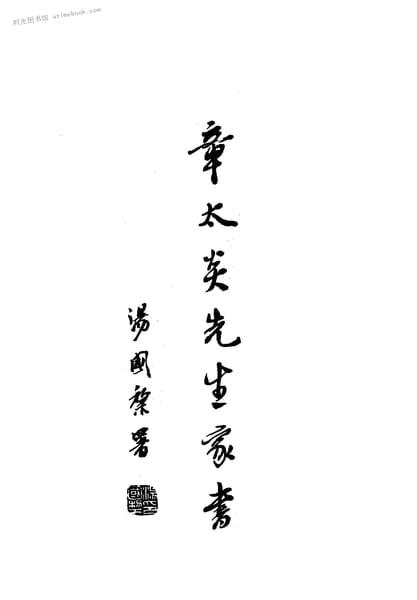 时光图书馆 atimebook.com
章太炎先生家書
湯國棃署